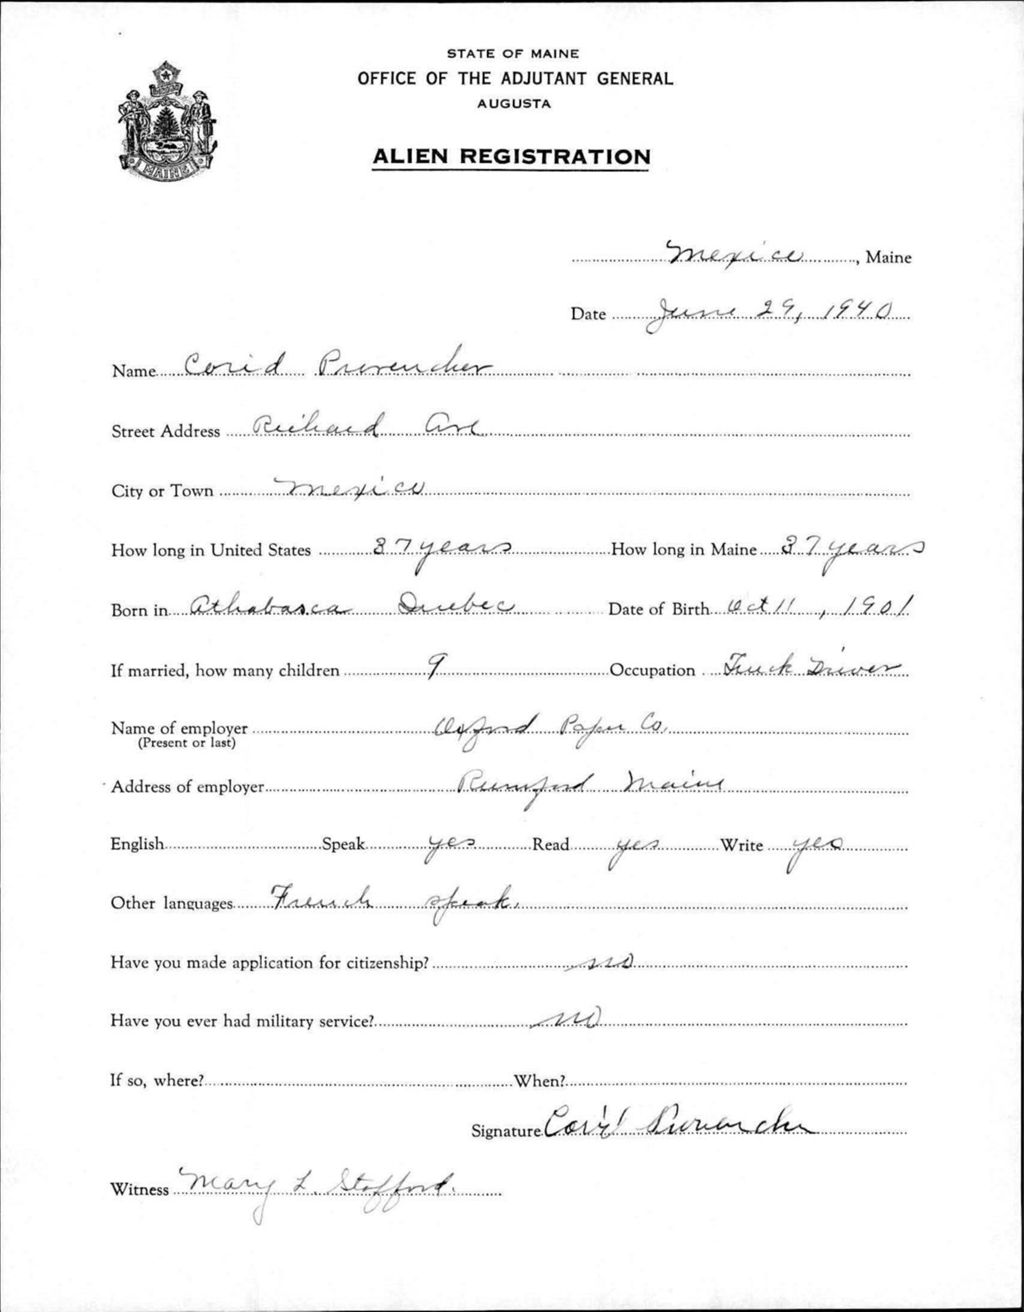 STATE OF MAINE
OFFICE OF THE ADJUTANT GENERAL
AUGUSTA
MAINE
ALIEN REGISTRATION
Mexico, Maine
Date June 29, 1940
Name Corid Provencher
Street Address Richard Ave
City or Town Mexico
How long in United States 37 years How long in Maine 37 years
Born in Athabasca Quebec Date of Birth Oct 11, 1901
If married, how many children 9 Occupation Truck Driver
Name of employer Oxford Paper Co.
(Present or last)
Address of employer Rumford Maine
English Speak yes Read yes Write yes
Other languages French speak.
Have you made application for citizenship? no
Have you ever had military service? no
If so, where? When?
Signature Provencher
Witness Mary L. Stafford.